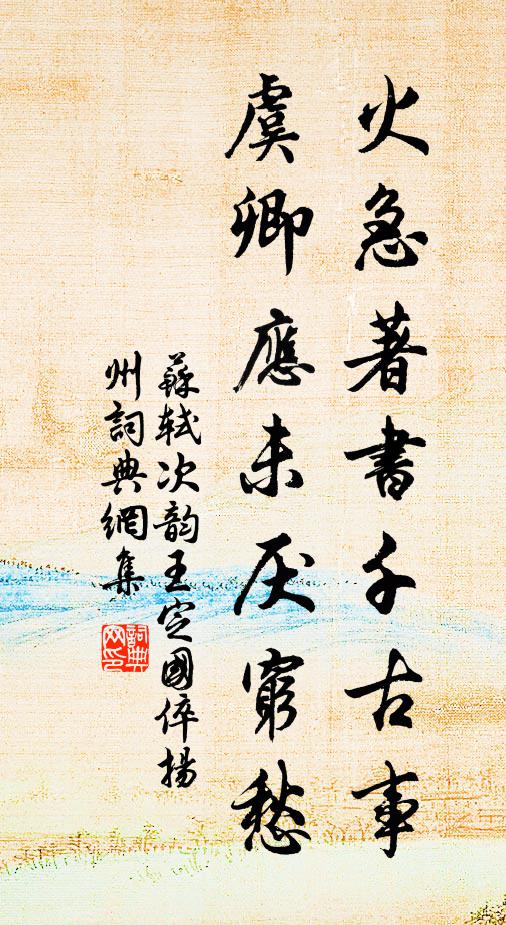 火急著書千古事
虞卿應未厌窮愁
蘇轼次韵王定國倅揚
州詞典網集
詞典网印